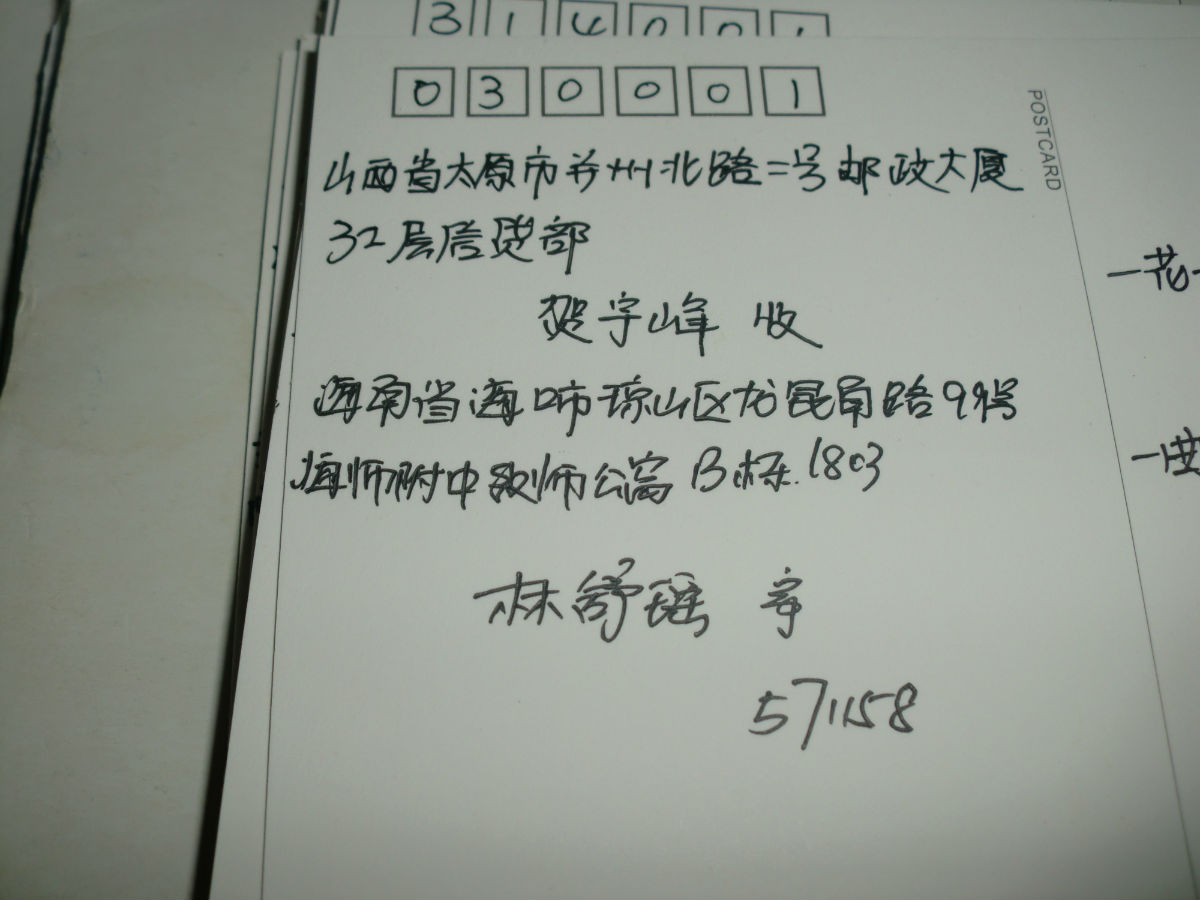 314001
030001
POSTCARD
山西省太原市并州北路二号邮政大厦
32层信贷部
贺宇峰 收
海南省海口市琼山区龙昆南路99号
海师附中教师公寓B栋1803
林舒瑶 寄
571158
一花一